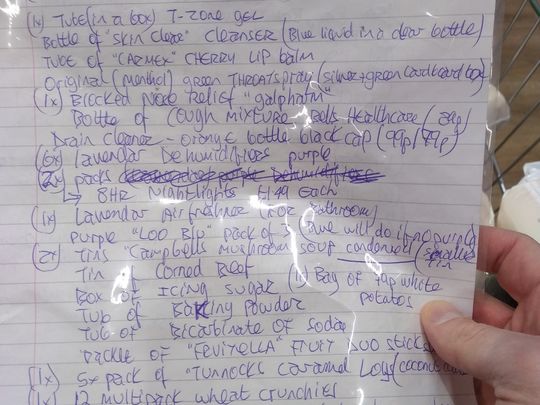 (1x) Tube (in a box) T-zone gel
Bottle of "skin clear" cleanser (Blue liquid in a clear bottle)
Tube of "CARMEX" CHERRY LIP balm
Original (menthol) green THROAT spray (silver+green cardboard box)
(1x) Blocked Nose Relief "galpharm"
Bottle of COUGH MIXTURE - Bells Healthcare (
Drain cleaner - orange bottle black cap (99p/79p)
(6x) lavendar Dehumidifiers purple
(2x) packs
8HR Nightlights £1.49 Each
(1x) Lavendar Airfreshner (for Bathroom)
purple "LOO Blu" pack of 2 (blue will do if no purple)
(2x) Tins "Campbells Mushroom soup condensed (smaller tin
Tin of Corned Beef (1x) Bag of 79p white
Box of Icing sugar potatos
Tub of Baking Powder
Tub of Bicarbinate OF Soda
Packle of "FRUITELLA" FRUIT DUO sticks
(1x) 5x pack of "Tunnocks caramel Logs (coconut
(1x) 12 multipack wheat crunchies